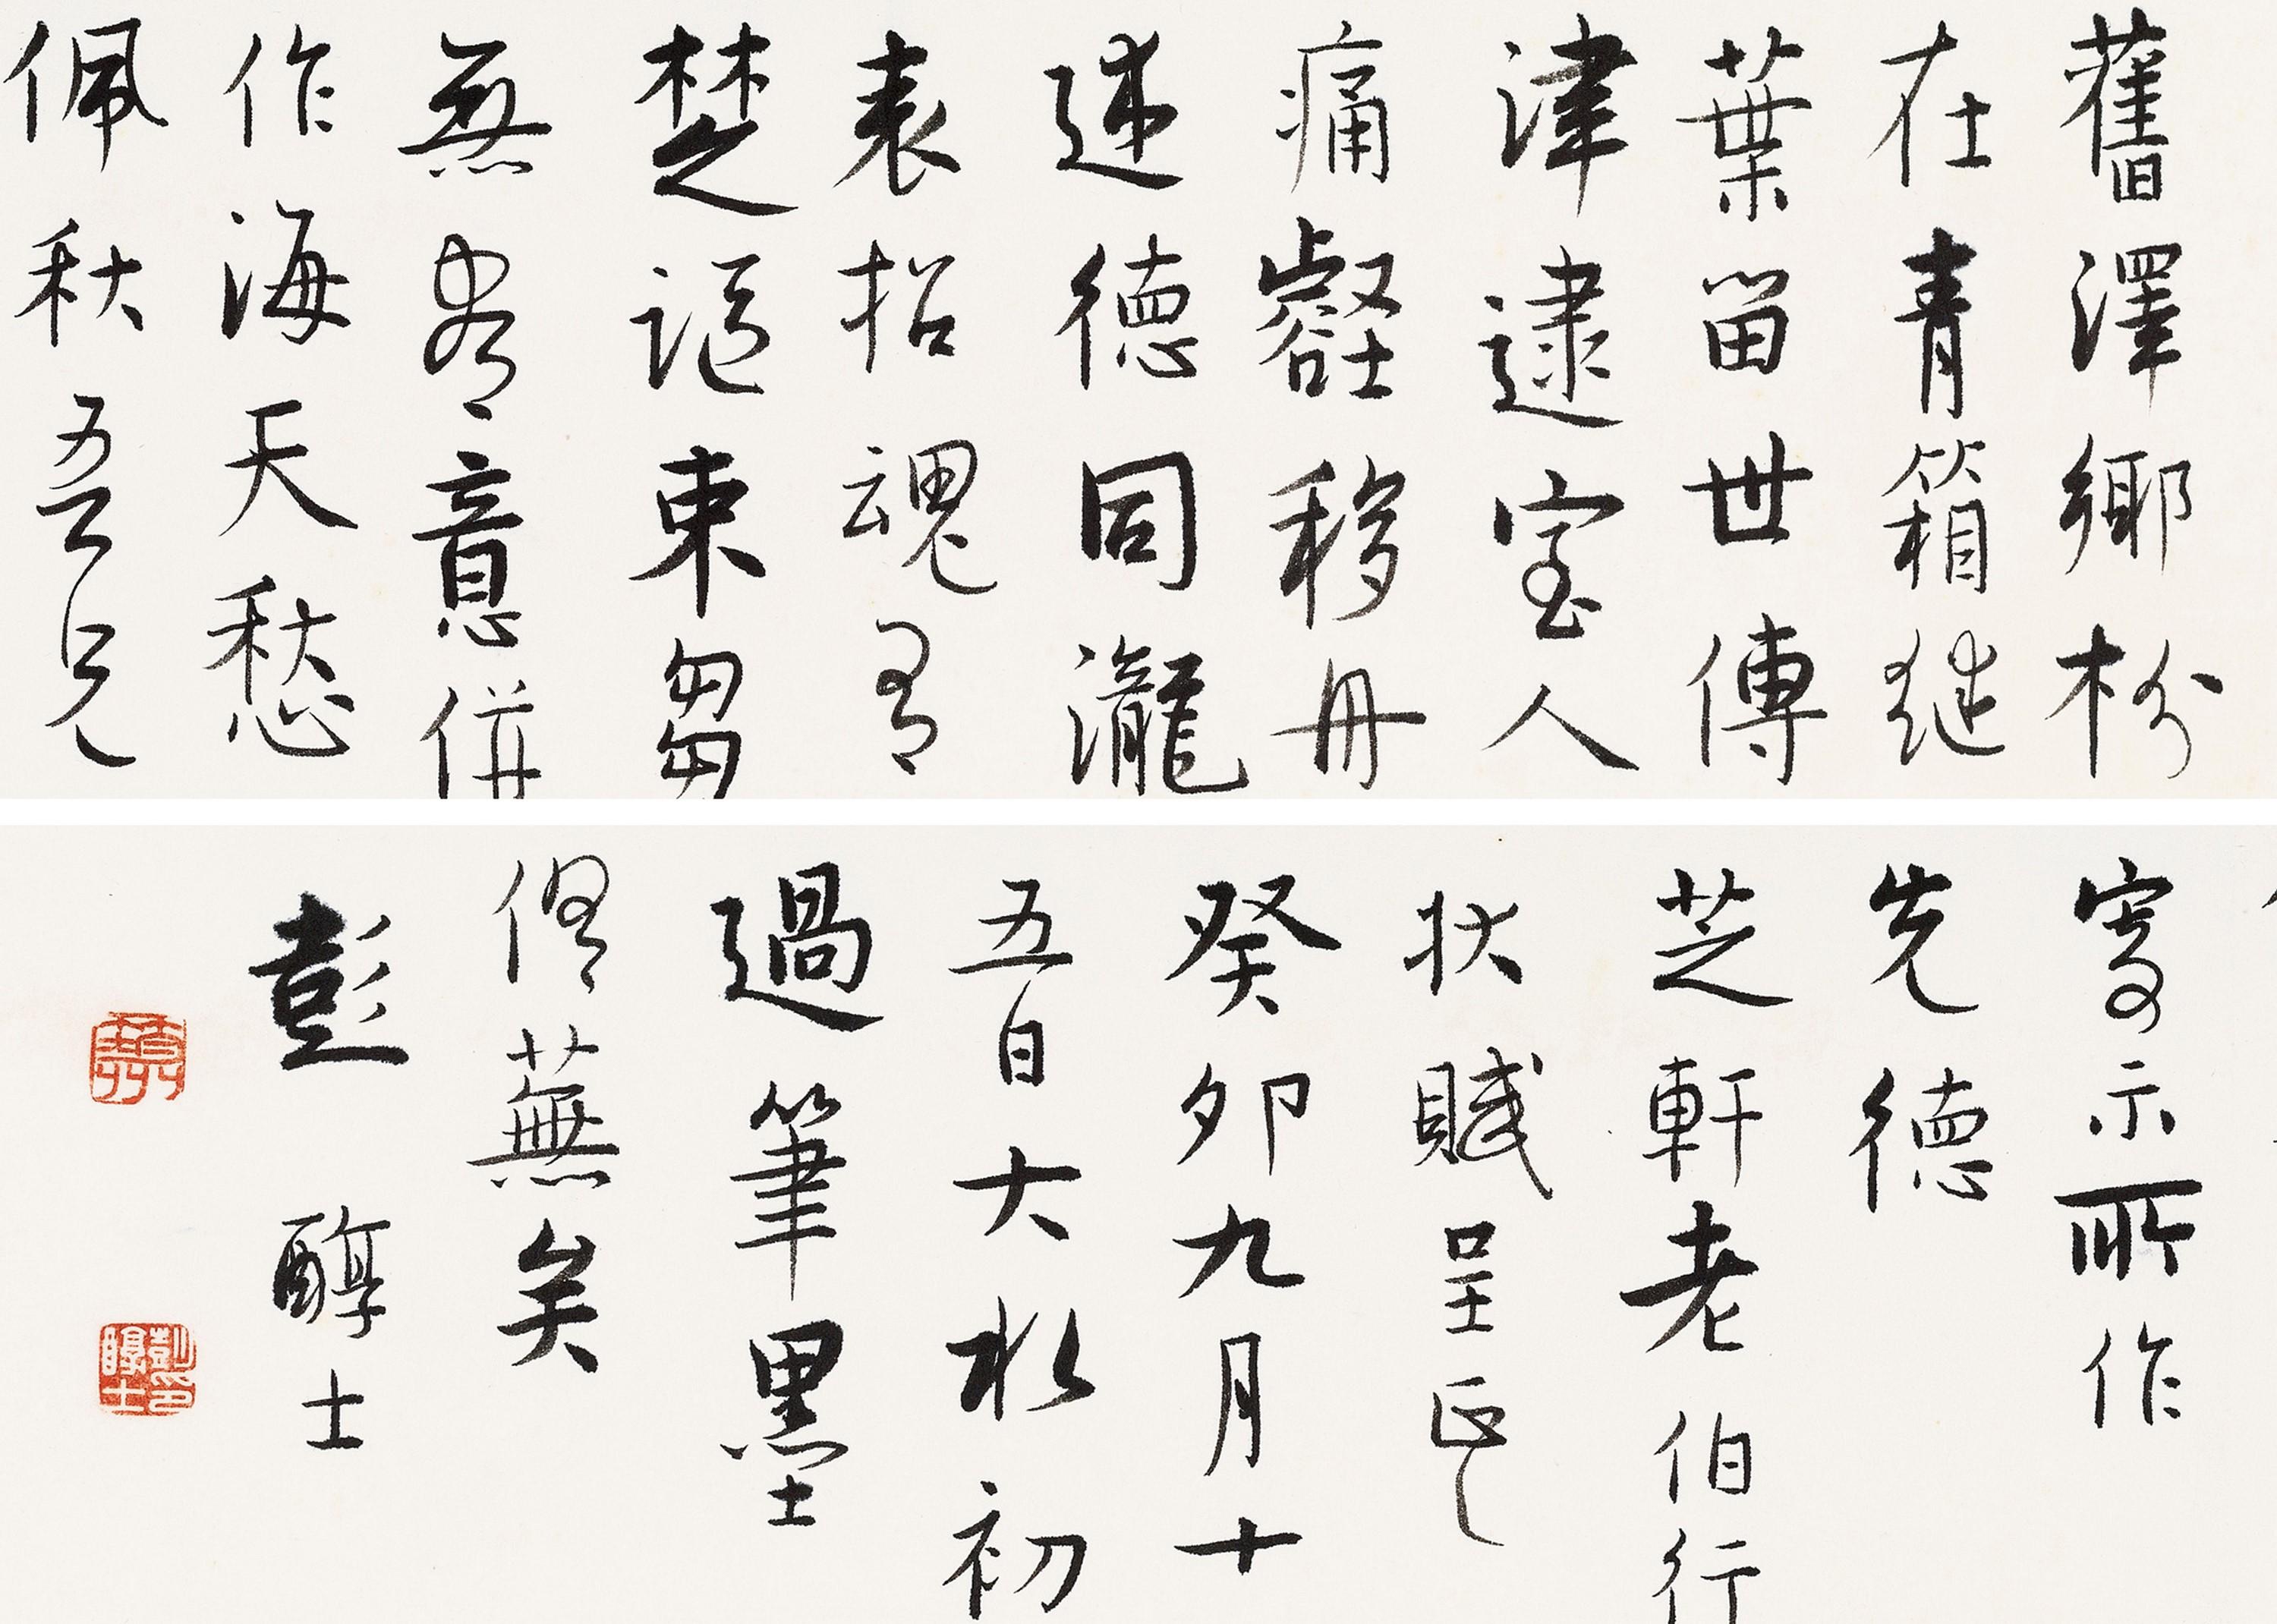 舊澤鄉枌
在青箱継
葉留世傳
津逮室人
痛壑移舟
述德同瀧
表招魂有
楚謳束芻
無盡意併
作海天愁
佩秋吾兄
寄示所作
先德
芝軒老伯行
狀賦呈正
癸卯九月十
五日大水初
過筆墨
蕪矣
彭醇士
彭醇士印